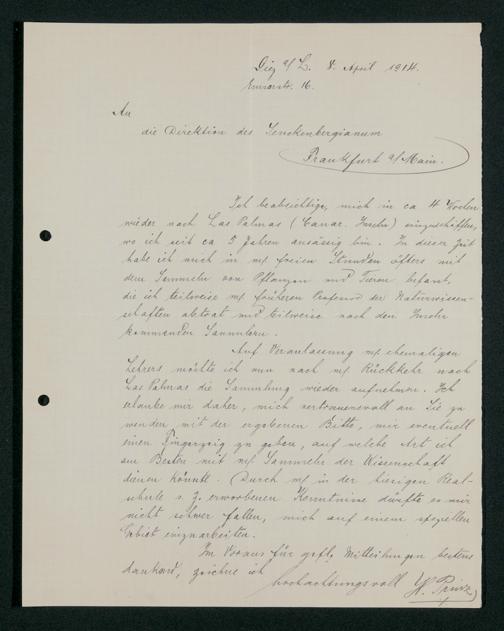 Diez a/L. 8. April 1914.
Emserstr. 16.
An
die Direktion des Senckenbergianum
Frankfurt a/Main.
Ich beabsichtige, mich in ca 4 Wochen
wieder nach Las Palmas (Canar. Inseln) einzuschiffen,
wo ich seit ca 5 Jahren ansässig bin. In dieser Zeit
habe ich mich in m/ freien Stunden öfters mit
dem Sammeln von Pflanzen und Tieren befasst,
die ich teilweise m/ früheren Professor der Naturwissen-
schaften abtrat und teilweise nach den Inseln
kommenden Sammlern.
Auf Veranlassung m/ ehemaligen
Lehrers möchte ich nun nach m/ Rückkehr nach
Las Palmas die Sammlung wieder aufnehmen. Ich
erlaube mir daher, mich vertrauensvoll an Sie zu
wenden mit der ergebenen Bitte, mir eventuell
einen Fingerzeig zu geben, auf welche Art ich
am Besten mit m/ Sammeln der Wissenschaft
dienen könnte. Durch m/ in der hiesigen Real-
schule s. Z. erworbenen Kenntnisse dürfte es mir
nicht schwer fallen, mich auf einem speziellen
Gebiet einzuarbeiten.
Im Voraus für gefl. Mitteilungen bestens
dankend, zeichne ich
hochachtungsvoll